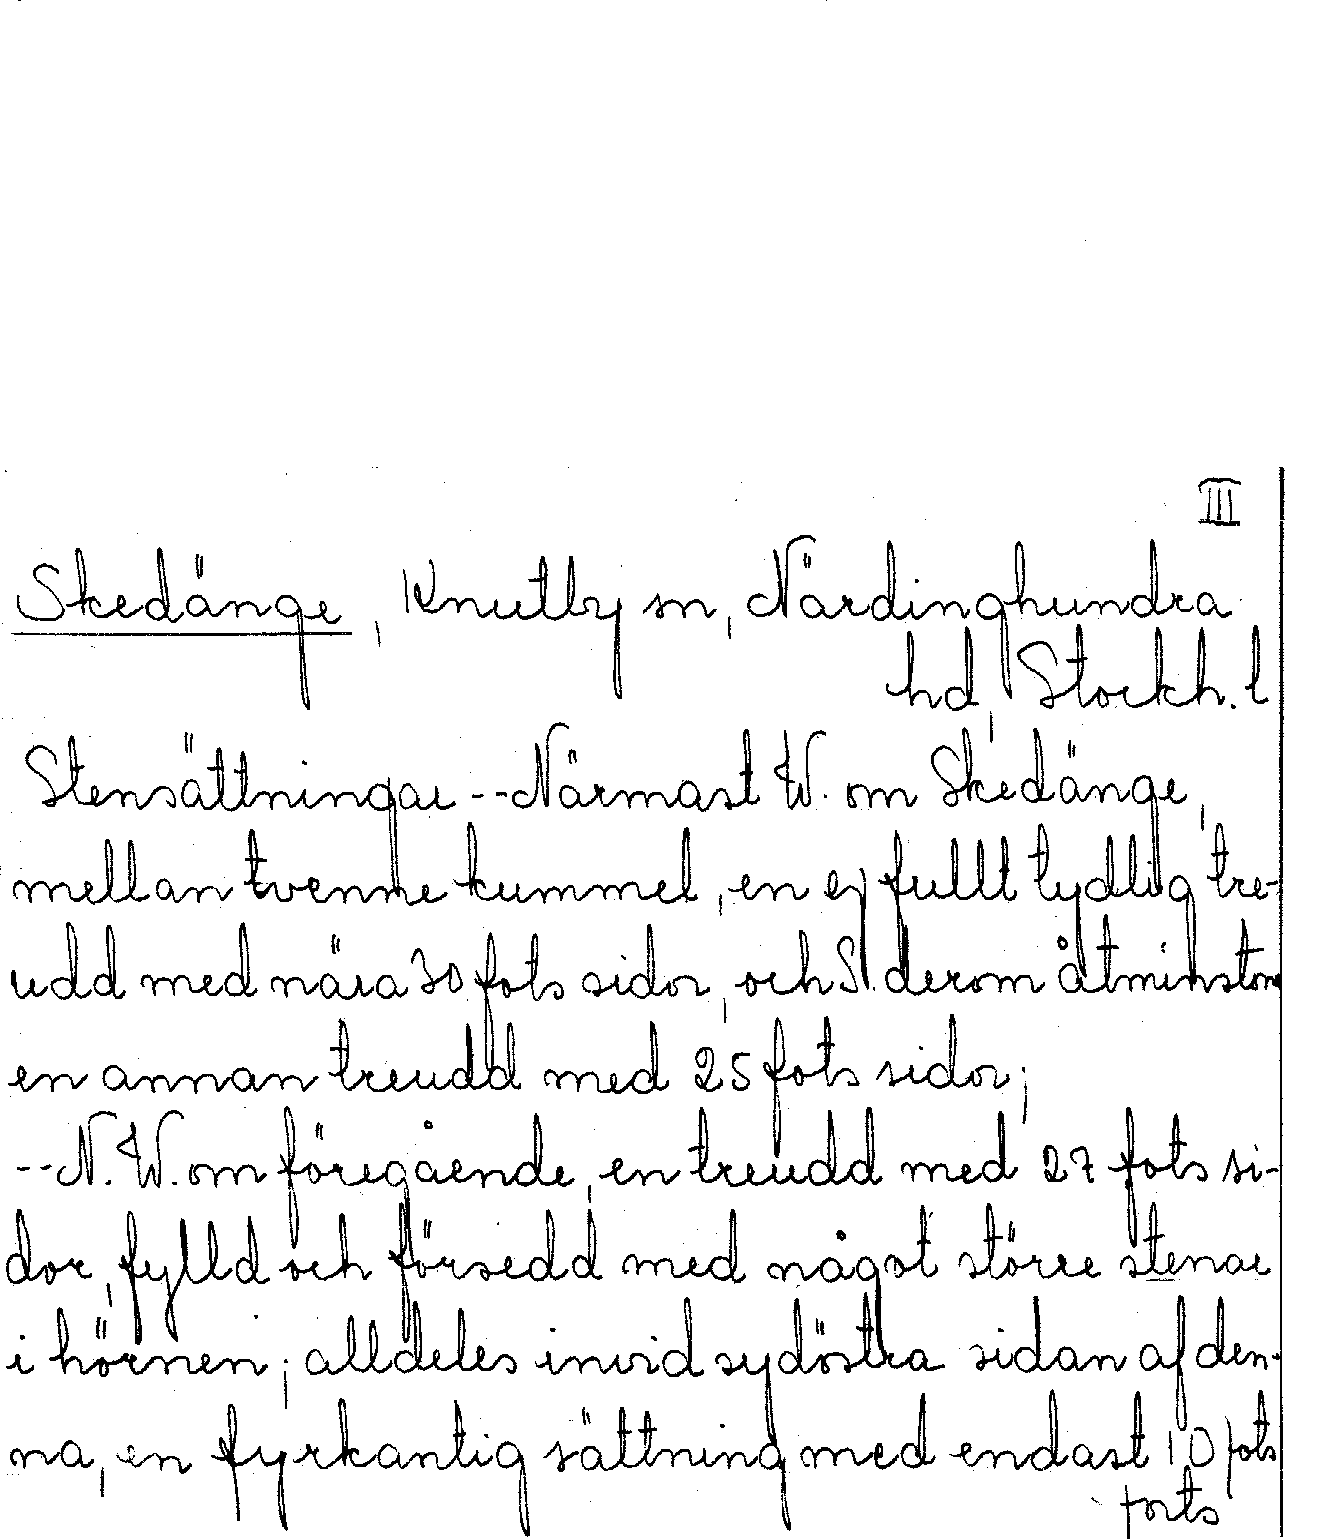 III
Skedänge, Knutby sn, Närdinghundra
hd, Stockh. l
Stensättningar -- Närmast W. om Skedänge,
mellan tvenne kummel, en ej fullt tydlig tre-
udd med nära 30 fots sidor, och S. derom åtminstone
en annan treudd med 25 fots sidor;
-- N.W. om föregående, en treudd med 27 fots si-
dor, fylld och försedd med något större stenar
i hörnen; alldeles invid sydöstra sidan af den-
na, en fyrkantig sättning med endast 10 fots
forts